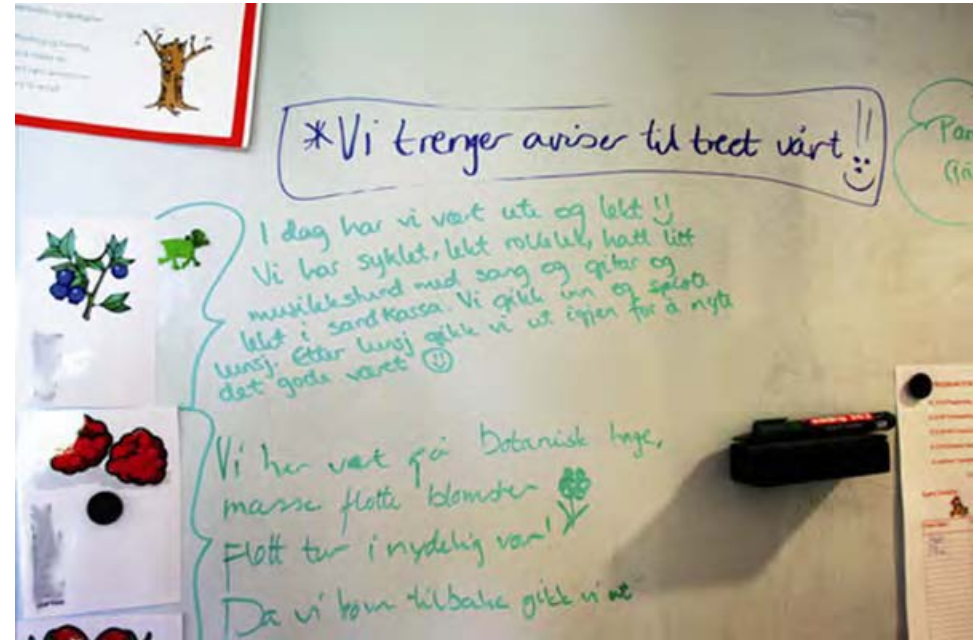 *Vi trenger aviser til treet vårt!!
Pan
I dag har vi vært ute og lekt!!
Vi har syklet, lekt rollelek, hatt litt
musikkstund med sang og gitar og
lekt i sandkassa. Vi gikk inn og spiste
lunsj. Etter lunsj gikk vi ut igjen for å nyte
det gode været
Vi har vært på Botanisk hage,
masse flotte blomster
Flott tur i nydelig vær!
Da vi kom tilbake gikk vi ut